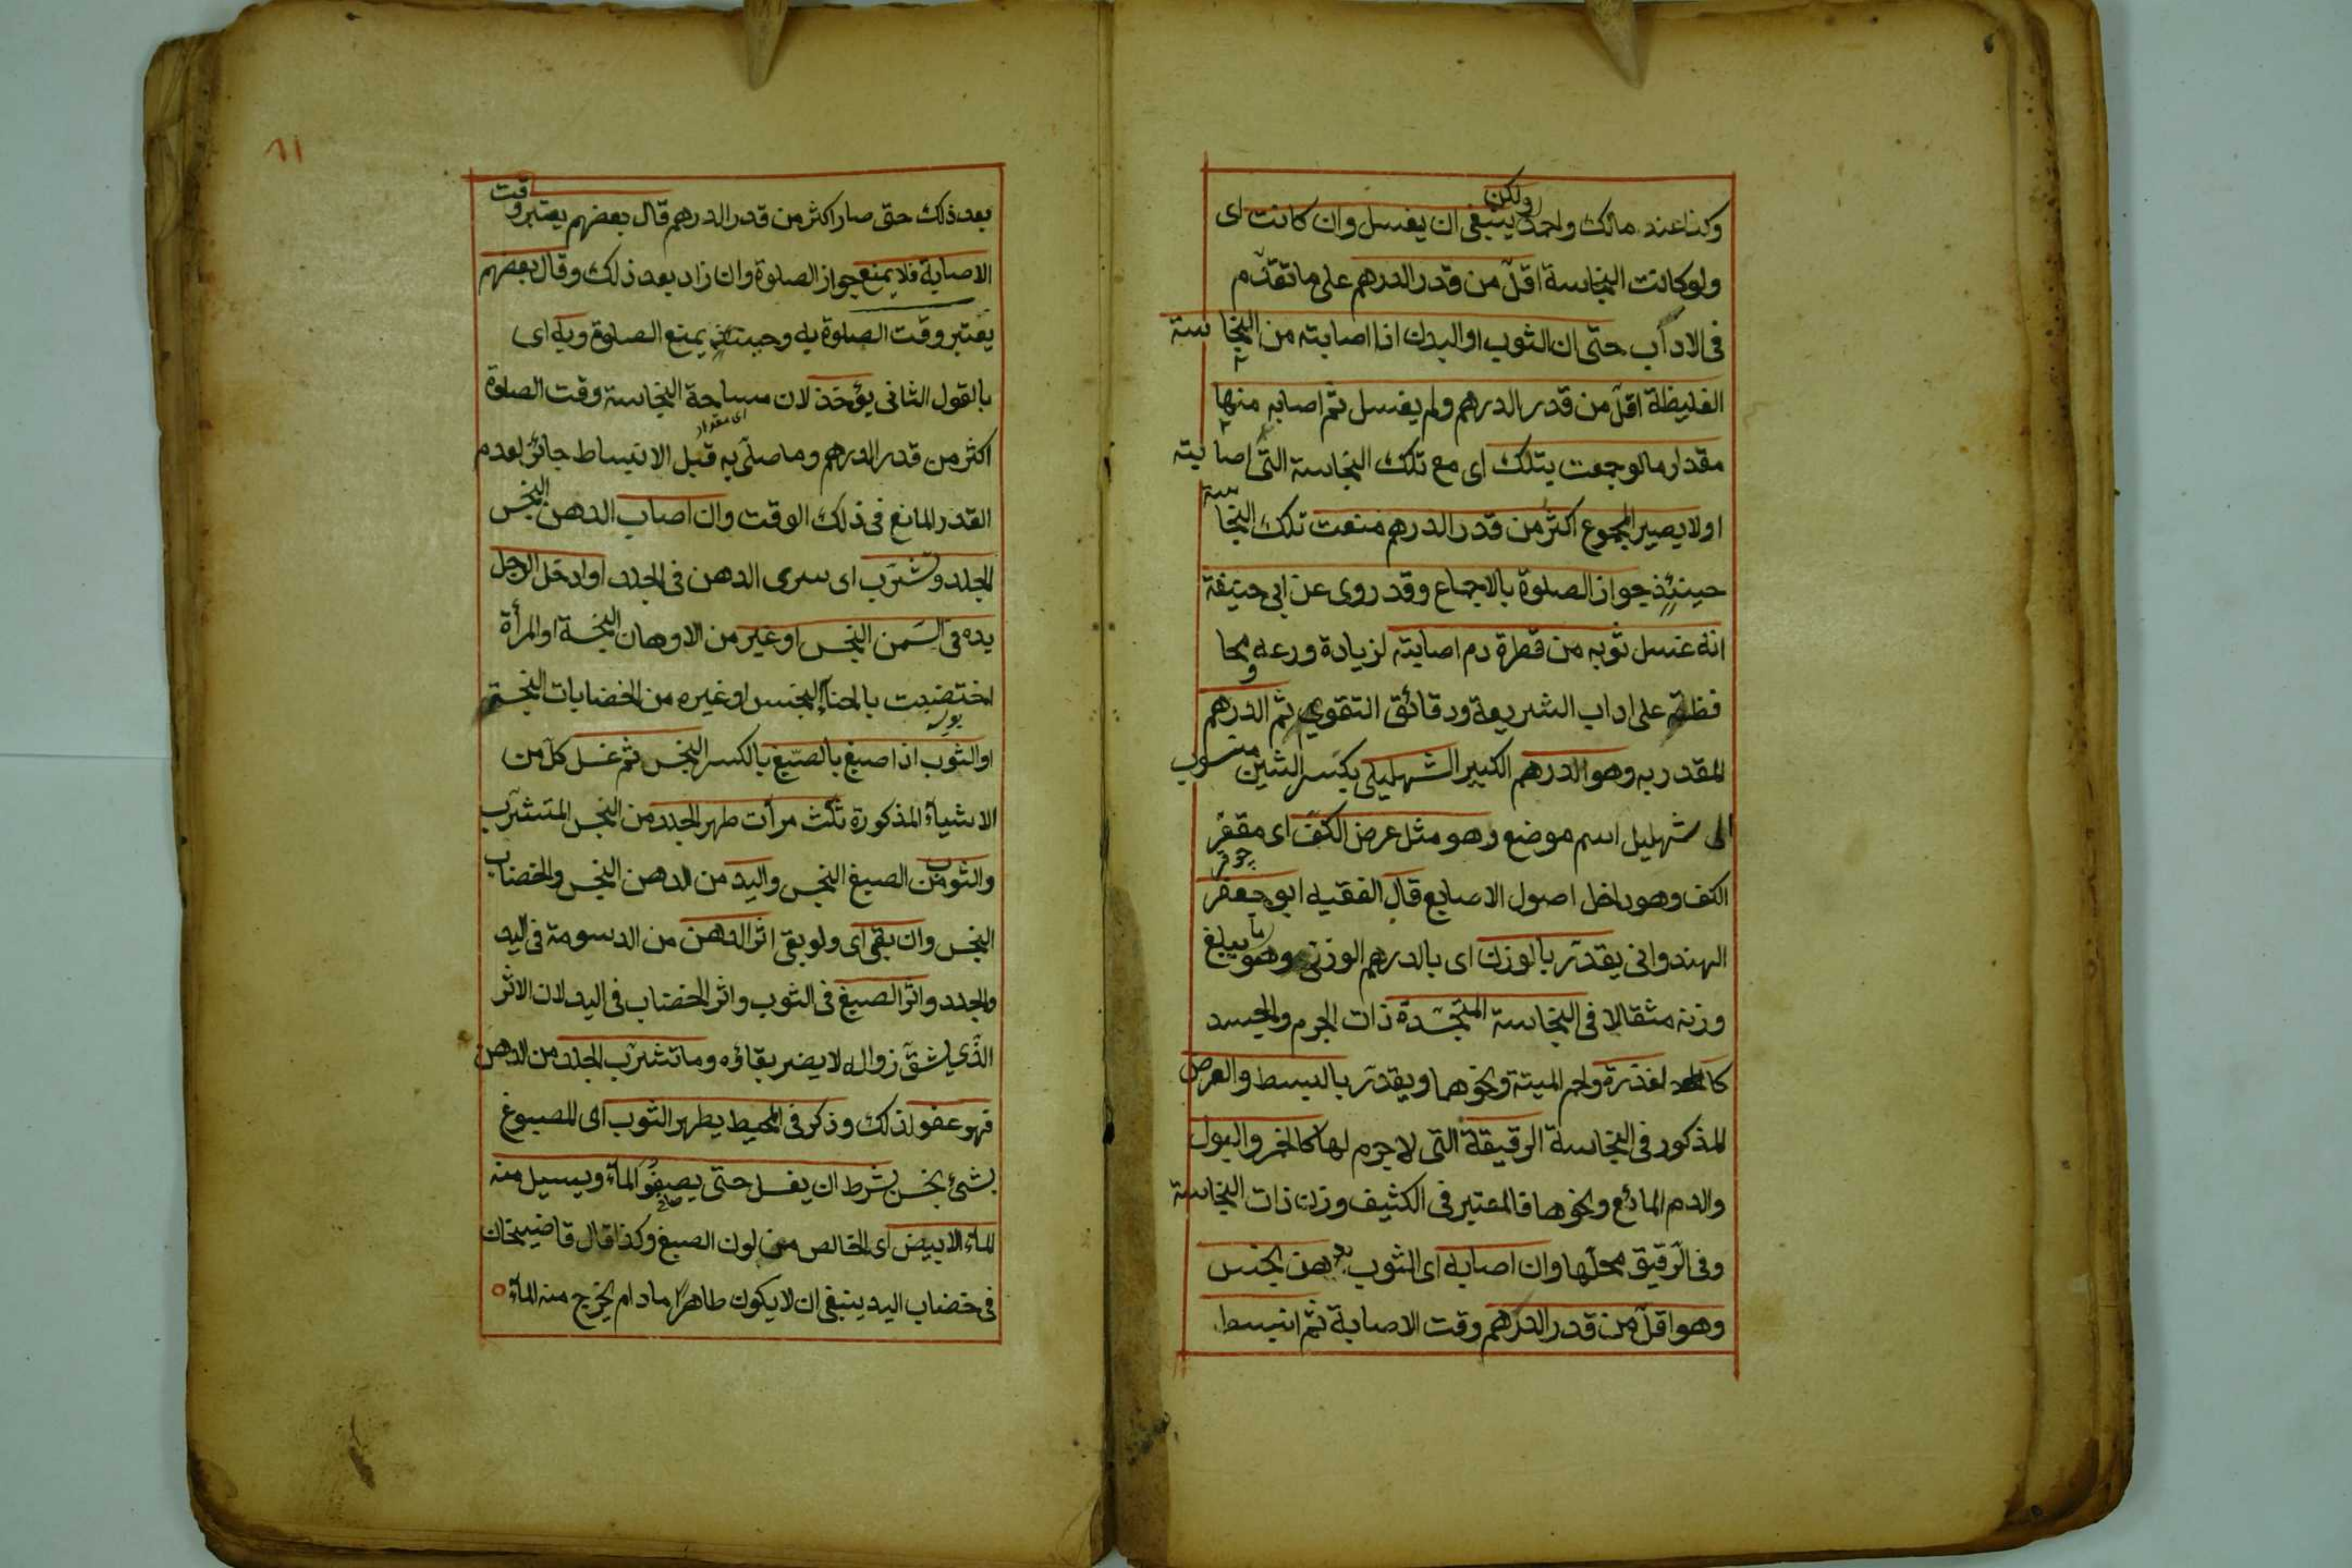 وكذا عند مالك واحمد ولكن ينبغى ان يغسل وان كانت اى
ولو كانت النجاسة اقلّ من قدر الدرهم على ما تقدّم
فى الاداب حتى ان الثوب او البدن اذا اصابته من النجاسة
الغليظة اقلّ من قدر الدرهم ولم يغسل ثم اصابه منها
مقدار ما لو جمعت بتلك اى مع تلك النجاسة التى اصابته
اولا يصير المجموع اكثر من قدر الدرهم منعت تلك النجاسة
حينئذ جواز الصلوة بالاجماع وقد روى عن ابى حنيفة
انه غسل ثوبه من قطرة دم اصابته لزيادة ورعه ومحا
فظته على اداب الشريعة ودقائق التقوى ثم الدرهم
المقدر به وهو الدرهم الكبير الشهليلى بكسر الشين منسوب
الى شهليل اسم موضع وهو مثل عرض الكفّ اى مقعّر
الكف وهو داخل اصول الاصابع قال الفقيه ابو جعفر
الهندوانى يقدّر بالوزن اى بالدرهم الوزنى وهو ما يبلغ
وزنه مثقالا فى النجاسة المتجسّدة ذات الجرم والجسد
كالعذرة ولحم الميتة ونحوهما ويقدّر بالبسط والعرض
المذكور فى النجاسة الرقيقة التى لا جرم لها كالخمر والبول
والدم المائع ونحوها فالمعتبر فى الكثيف وزن ذات النجاسة
وفى الرّقيق محلّها وان اصابه اى الثوب دهن نجس
وهو اقلّ من قدر الدرهم وقت الاصابة ثم انبسط
٦١
بعد ذلك حتى صار اكثر من قدر الدرهم قال بعضهم يعتبر وقت
الاصابة فلا يمنع جواز الصلوة وان زاد بعد ذلك وقال بعضهم
يعتبر وقت الصلوة به وحينئذ يمنع الصلوة وبه اى
بالقول الثانى يؤخذ لان مساحة النجاسة وقت الصلوة
اى مقدار
اكثر من قدر الدرهم وما صلّى به قبل الانبساط جائز لعدم
القدر المانع فى ذلك الوقت وان اصاب الدهن النجس
الجلد وتشرّب اى سرى الدهن فى الجلد او ادخل الرجل
يده فى السّمن النجس او غيره من الادهان النجسة او المرأة
اختضبت بالحنآء النجس او غيره من الخضابات النجسة
او الثوب اذا صبغ بالصّبغ بالكسر النجس ثم غسل كلّ من
الاشياء المذكورة ثلث مرات طهر الجلد من النجس المتشرّب
والثوب من الصبغ النجس واليد من الدهن النجس والخضاب
النجس وان بقى اى ولو بقى اثر الدهن من الدسومة فى اليد
والجلد واثر الصبغ فى الثوب واثر الخضاب فى اليد لان الاثر
الذى يشقّ زواله لا يضر بقاؤه وما تشرّب الجلد من الدهن
فهو عفو لذلك وذكر فى المحيط يطهر الثوب اى المصبوغ
بشئ نجس بشرط ان يغسل حتى يصفو المآء ويسيل منه
المآء الابيض اى الخالص من لون الصبغ وكذا قال قاضيخان
فى خضاب اليد ينبغى ان لا يكون طاهرًا ما دام يخرج منه المآء